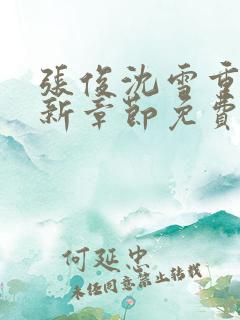 張俊沈雪重
新章節免費
何延忠
未经同意禁止转载